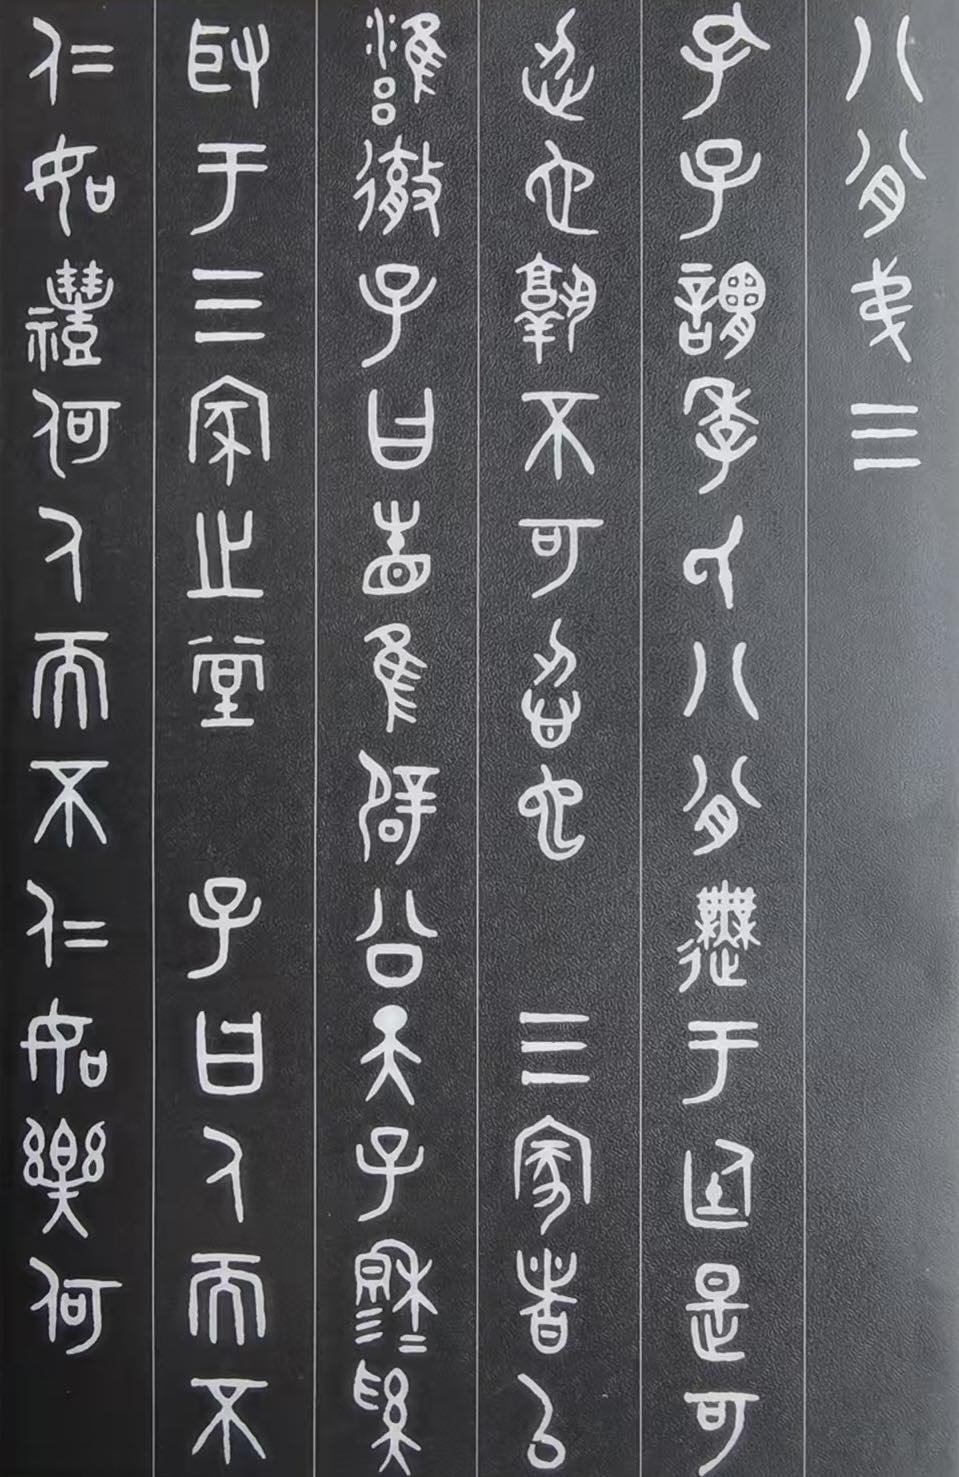 八佾弟三
孔子謂季氏八佾舞于廷是可
忍也孰不可忍也 三家者以
雝徹子曰相隹辟公天子穆=奚
取于三家之堂 子曰人而不
仁如禮何人而不仁如樂何